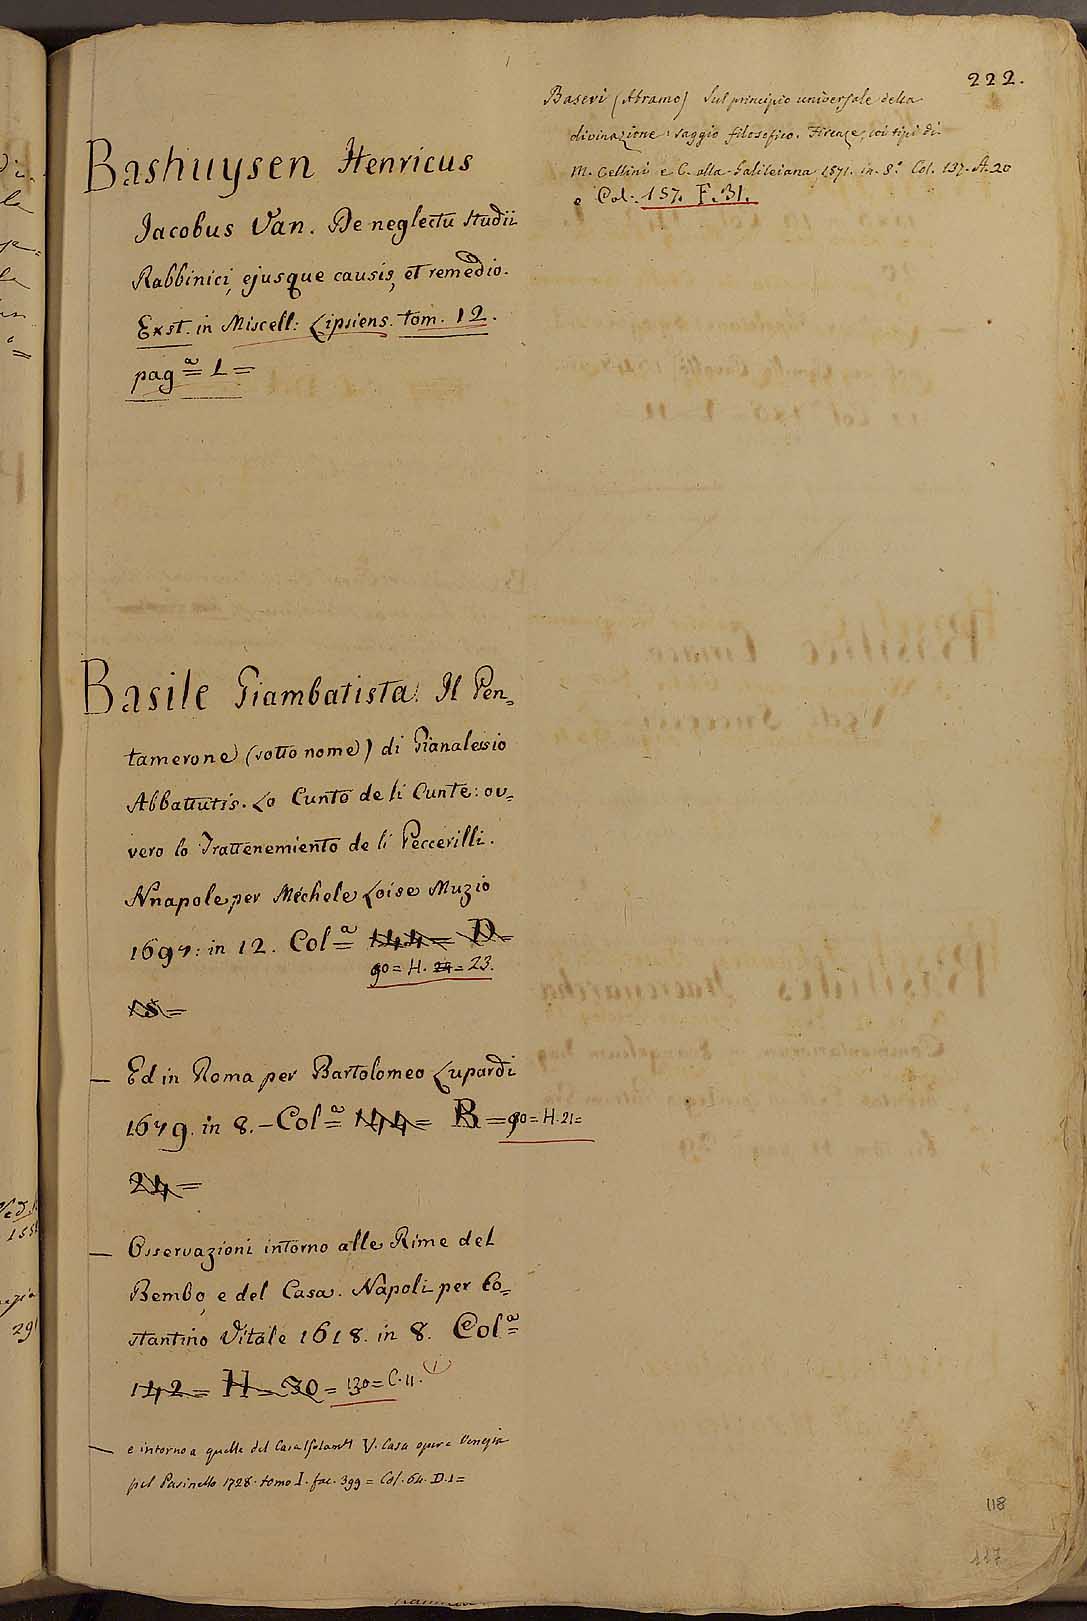 222.
Basevi (Abramo) Sul principio universale della
divinazione: saggio filosofico. Firenze, coi tipi di
M. Cellini e C. alla Galileiana, 1871. in-8.° Col. 137. A. 20
e Col. 157. F. 31.
Bashuysen Henricus
Jacobus Van. De neglectu studii
Rabbinici, ejusque causis, et remedio.
Exst. in Miscell: Lipsiens. tom. 12.
pag.ª 1 =
Basile Giambatista. Il Pen=
tamerone (sotto nome) di Gianalessio
Abbattutis. Lo Cunto de li Cunte: ov=
vero lo Trattenemiento de li Peccerilli.
Nnapole, per Mechele Loise Muzio
1697: in 12. Col.ª 144 = D =
90 = H. 24 = 23.
18 =
— Ed in Roma per Bartolomeo Lupardi
1679. in 8. - Col.ª 144 = B = 90 = H. 21 =
24 =
— Osservazioni intorno alle Rime del
Bembo, e del Casa. Napoli per Co=
stantino Vitale 1618. in 8. Col.ª
142 = H = 30 = 130 = C. 11.
— e intorno a quelle del Casa V. Casa opere Venezia
pel Pasinello 1728. tomo I. fac. 399 = Col. 64. D. 1 =
118
117